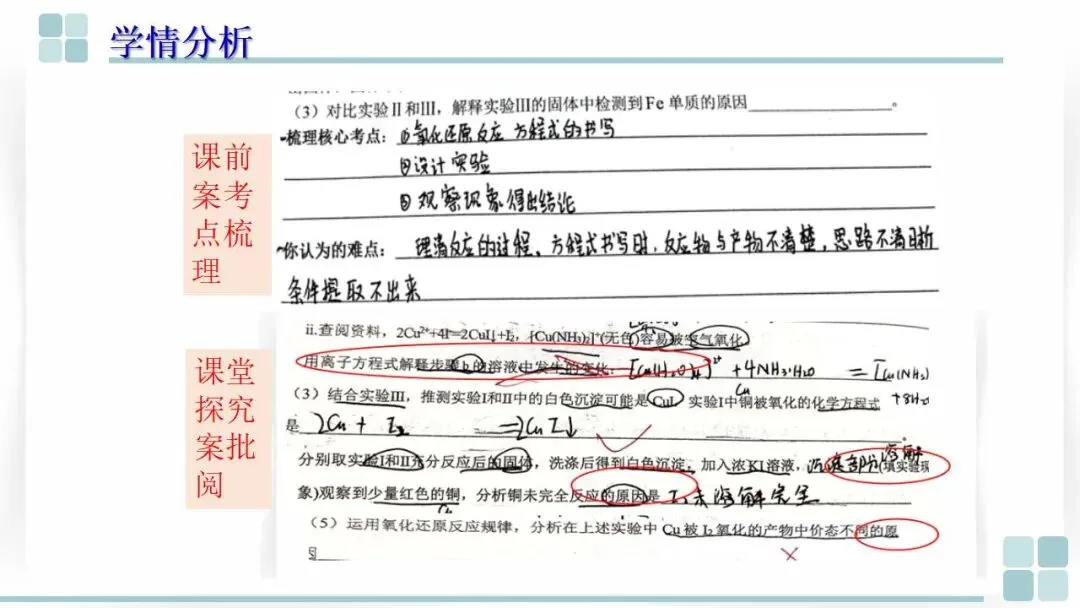 学情分析
课前
案考
点梳
理
(3）对比实验Ⅱ和Ⅲ，解释实验Ⅲ的固体中检测到Fe 单质的原因___________。
梳理核心考点：①氧化还原反应 方程式的书写
②设计实验
③观察现象得出结论
你认为的难点： 理清反应的过程，方程式书写时，反应物与产物不清楚，思路不清晰
条件提取不出来
课堂
探究
案批
阅
ii.查阅资料，2Cu²⁺+4I⁻=2CuI↓+I₂，[Cu(NH₃)₂]⁺(无色)容易被空气氧化
用离子方程式解释步骤b的溶液中发生的变化：[Cu(H₂O)₄]²⁺ +4NH₃·H₂O = [Cu(NH₃)
+8H₂O
(3）结合实验Ⅲ，推测实验Ⅰ和Ⅱ中的白色沉淀可能是 CuI 实验Ⅰ中铜被氧化的化学方程式
是 2Cu + I₂ =2CuI↓
分别取实验Ⅰ和Ⅱ充分反应后的固体，洗涤后得到白色沉淀，加入浓KI溶液，沉淀部分溶解(填实验现
象)观察到少量红色的铜，分析铜未完全反应的原因是 I₂未溶解完全
(5）运用氧化还原反应规律，分析在上述实验中 Cu 被 I₂ 氧化的产物中价态不同的原